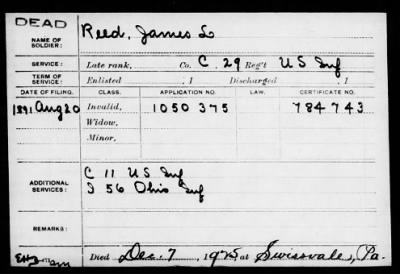 DEAD
NAME OF SOLDIER: Reed, James L
SERVICE: Late rank, Co. C, 29 Reg't US Inf
TERM OF SERVICE: Enlisted , 1 Discharged , 1
DATE OF FILING. CLASS. APPLICATION NO. LAW. CERTIFICATE NO.
1891 Aug 20 Invalid, 1050 375 784743
Widow,
Minor,
ADDITIONAL SERVICES: C 11 US Inf
I 56 Ohio Inf
REMARKS:
Died Dec. 7, 1925 at Swissvale, Pa.